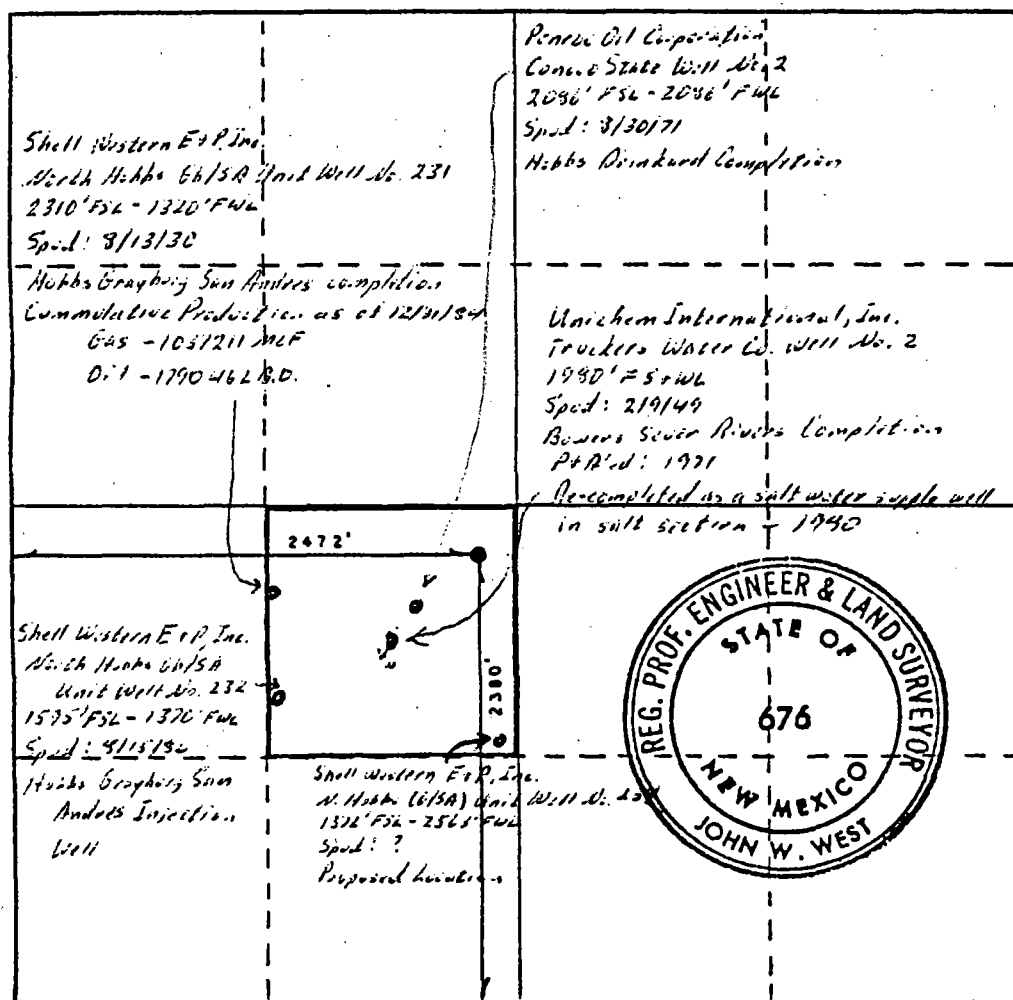 Shell Western E&P, Inc.
North Hobbs Gb/SA Unit Well No. 231
2310' FSL - 1320' FWL
Spud: 8/13/30
Hobbs Grayburg San Andres completion
Commulative Production as of 12/31/84
Gas - 1037211 MCF
Oil - 1790462 B.O.
Oil Corporation
Conoco State Well No. 2
2086' FSL - 2086' FWL
Spud: 8/30/71
Hobbs Drinkard Completion
Unichem International, Inc.
Truckers Water Co. Well No. 2
1980' FS&WL
Spud: 2/9/49
Bowers Seven Rivers Completion
P&A'ed: 1971
Re-completed as a salt water supply well
in salt section - 1980
2472'
2380'
Shell Western E&P, Inc.
North Hobbs Gb/SA
Unit Well No. 232
FSL - 1370' FWL
Spud:
Hobbs Grayburg San
Andres Injection
Well
Shell Western E&P, Inc.
N. Hobbs (G/SA) Unit Well No.
FSL - FWL
Spud: ?
Proposed Location
REG. PROF. ENGINEER & LAND SURVEYOR
STATE OF
676
NEW MEXICO
JOHN W. WEST